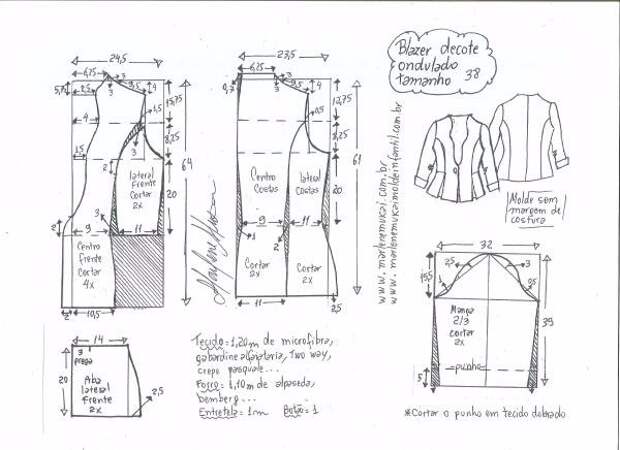 Blazer decote
ondulado
tamanho 38
24,5
6,75
5,75
2,5
3
3
9,5
4
15,75
4
1,5
8,25
64
1,5
3
2
lateral
Frente
Cortar
2x
20
3
2
9
11
Centro
Frente
Cortar
4x
2
10,5
23,5
6,75
3
9,5
4
12,75
8,25
61
Centro
Costas
lateral
Costas
20
9
11
1
2
Cortar
2x
Cortar
2x
11
2,5
www.marlenemukai.com.br
www.marlenemukaimoldeinfantil.com.br
Molde sem
margem de
costura
32
15,5
2,5
3
1
0,5
Manga
2/3
cortar
2x
39
punho
5
14
3
prega
20
Aba
lateral
Frente
2x
2,5
Tecido = 1,20m de microfibra,
gabardine alfaiataria, Two way,
crepe pasquale...
Forro = 1,10m de alpaseda,
bemberg...
Entretela = 1m Botão = 1
*Cortar o punho em tecido dobrado